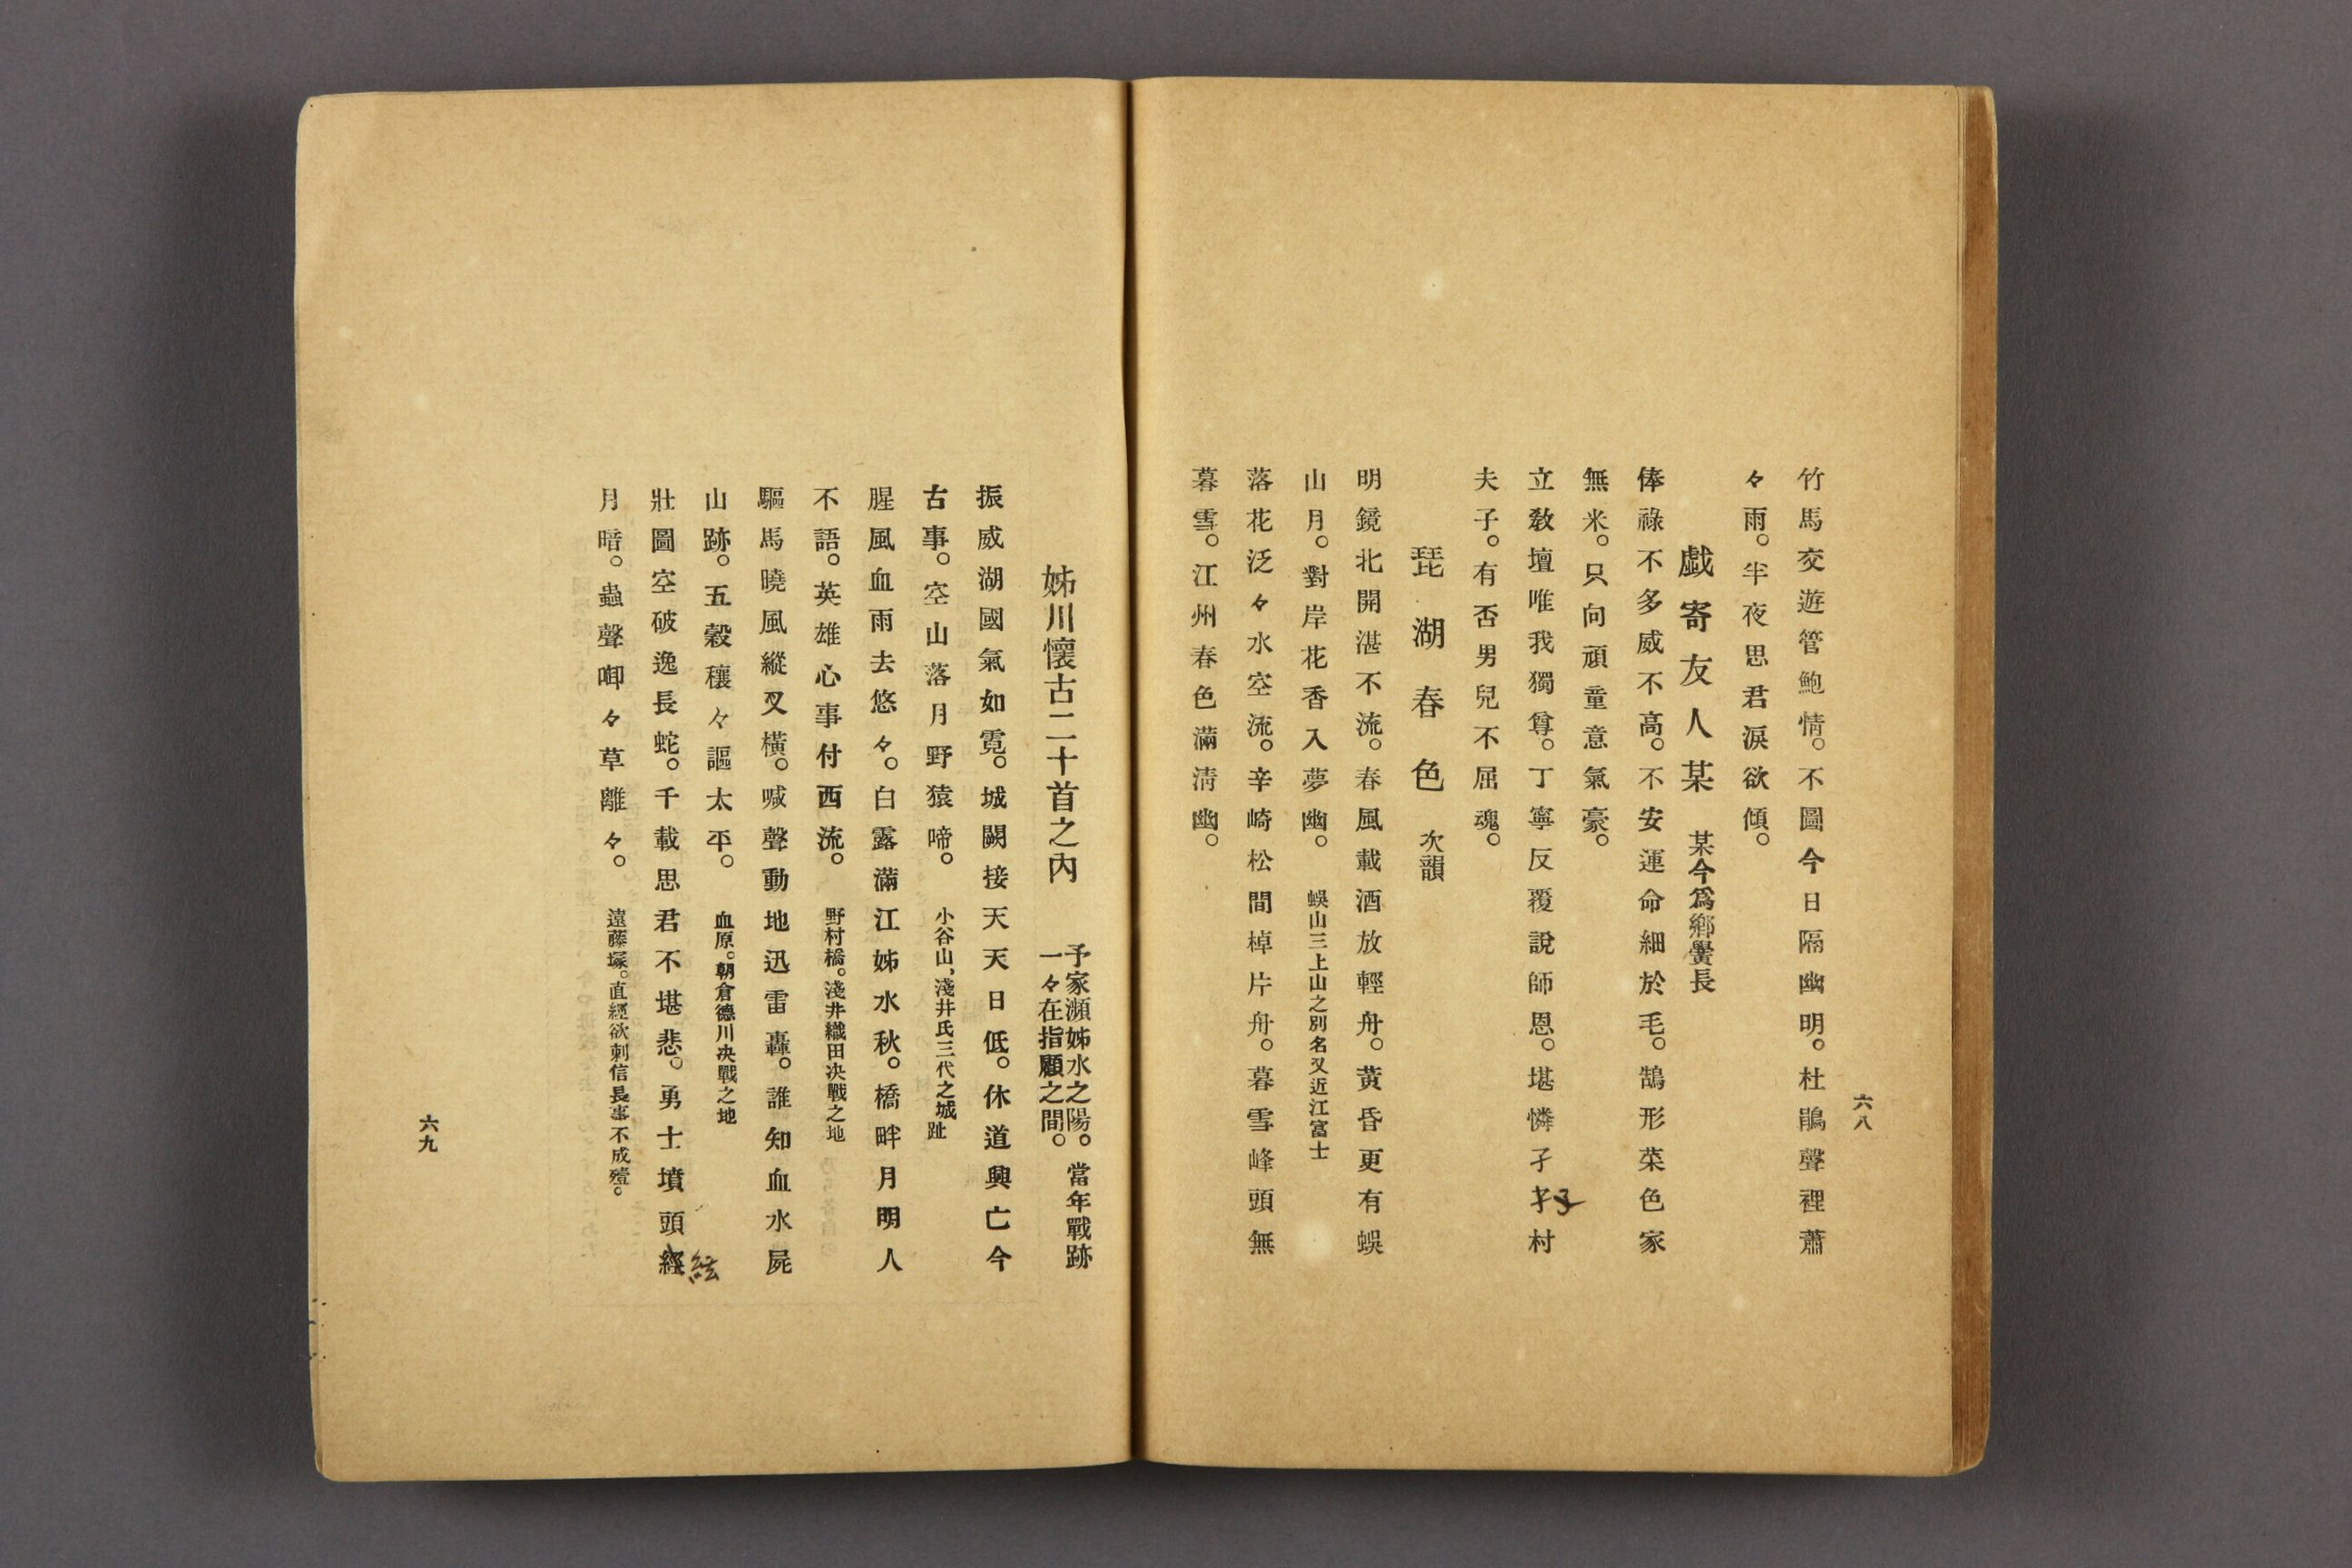 六八
竹馬交遊管鮑情。不圖今日隔幽明。杜鵑聲裡蕭
々雨。半夜思君淚欲傾。
戲寄友人某 某今爲鄕黌長
俸祿不多威不高。不安運命細於毛。鵠形菜色家
無米。只向頑童意氣豪。
立敎壇唯我獨尊。丁寧反覆說師恩。堪憐孑孑村
夫子。有否男兒不屈魂。
琵湖春色 次韻
明鏡北開湛不流。春風載酒放輕舟。黃昏更有蜈
山月。對岸花香入夢幽。 蜈山三上山之別名又近江富士
落花泛々水空流。辛崎松間棹片舟。暮雪峰頭無
暮雪。江州春色滿淸幽。
姊川懷古二十首之內 予家瀕姊水之陽。當年戰跡
一々在指顧之間。
振威湖國氣如霓。城闕接天天日低。休道興亡今
古事。空山落月野猿啼。 小谷山、淺井氏三代之城趾
腥風血雨去悠々。白露滿江姊水秋。橋畔月明人
不語。英雄心事付西流。 野村橋。淺井織田決戰之地
驅馬曉風縱又橫。喊聲動地迅雷轟。誰知血水屍
山跡。五穀穰々謳太平。 血原。朝倉德川決戰之地
壯圖空破逸長蛇。千載思君不堪悲。勇士墳頭經
絃
月暗。蟲聲喞々草離々。 遠藤塚。直經欲刺信長事不成殪。
六九